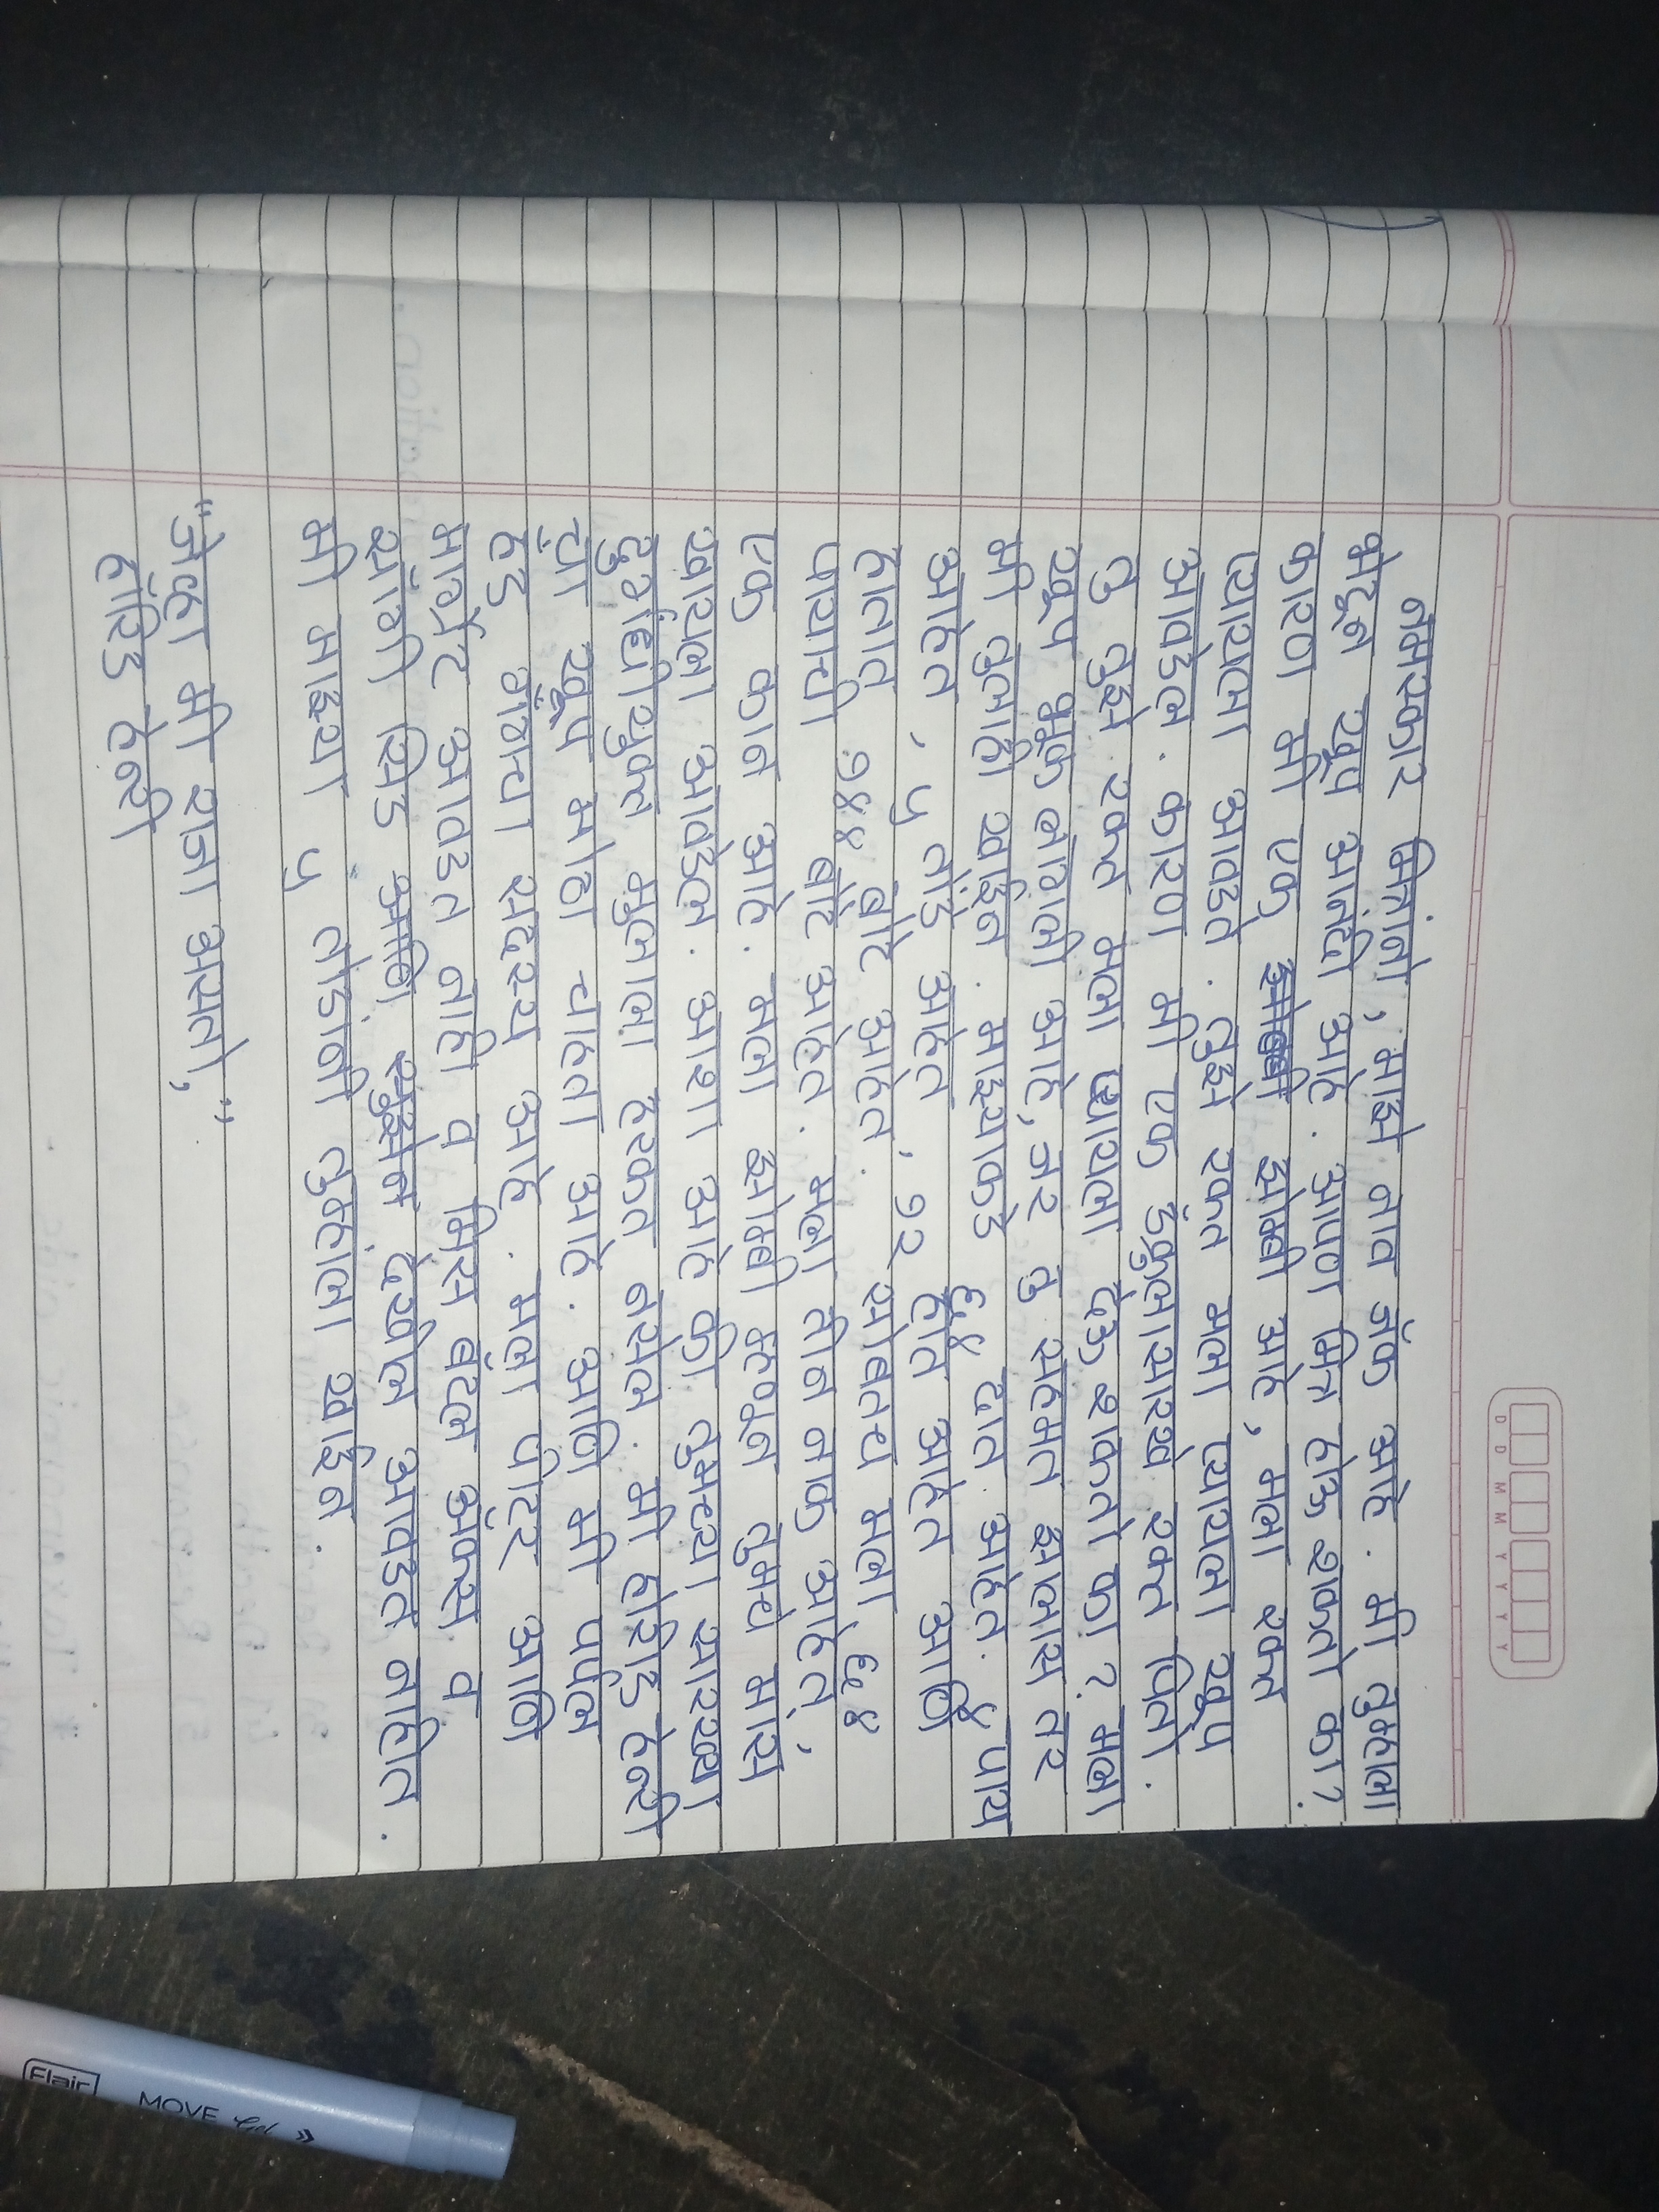 D D M M Y Y Y Y
नमस्कार मित्रांनो, माझे नाव जॅक आहे. मी तुम्हाला
भेटून खूप आनंदी आहे. आपण मित्र होऊ शकतो का?
कारण मी एक झोम्बी आहे, मला रक्त
प्यायला आवडते. तुझे रक्त मला प्यायला खूप
आवडेल. कारण मी एक ड्रॅकुलासारखे रक्त पितो.
तु तुझे रक्त मला प्यायला देऊ शकतो का? मला
खूप भूक लागली आहे, जर तु सहमत झालास तर
मी तुलाही खाईन. माझ्याकडे ६४ दात आहेत. ४ पाय
आहेत, ५ तोंडे आहेत, १२ हात आहेत आणि
हातात १४४ बोटे आहेत. सोबतच मला ६४
पायाची बोटे आहेत. मला तीन नाक आहेत,
एक कान आहे. मला झोम्बी म्हणून तुमचे मांस
खायला आवडेल. आशा आहे की तुमच्या सारख्या
दुर्गंधीयुक्त मुलाला हरकत नसेल. मी हॉरिड हेन्री
चा खूप मोठा चाहता आहे. आणि मी पर्पल
हॅंड गँगचा सदस्य आहे. मला पीटर आणि
मार्गरेट आवडत नाही व मिस बॅटल अॅक्स व
सॉगी सिड देखील आवडत नाहीत.
मी माझ्या ५ तोंडांनी तुम्हांला खाईन.
"जेव्हा मी राजा असतो,"
हॉरिड हेन्री
Flair
MOVE Gel »